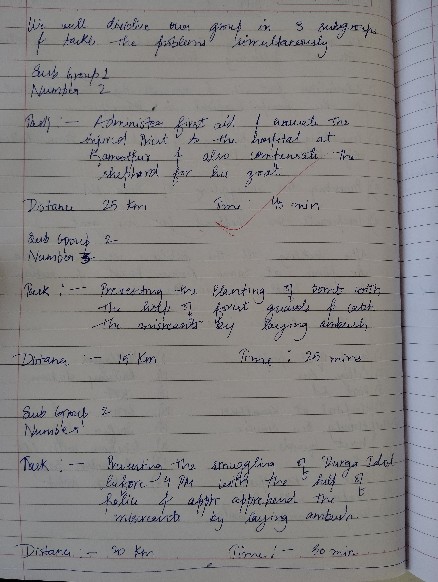 We will dissolve our group in 3 subgroups
& tackle the problems simultaneously
Sub Group 1
Number 2
Task :- Administer first aid & the
injured Priest to the hospital at
& also compensate the
shepherd for his goat.
Distance 25 Km Time : 45 min
Sub Group 2
Number 3
Task :- Preventing the Planting of bomb with
the help of forest guards & catch
the miscreants by laying ambush
Distance :- 15 Km Time : 25 mins
Sub Group 2
Number
Task :- Preventing the smuggling of Durga Idol
before 4 PM with the help of
police & appr apprehend the
miscreants by laying ambush
Distance :- 30 Km Time :- 30 min